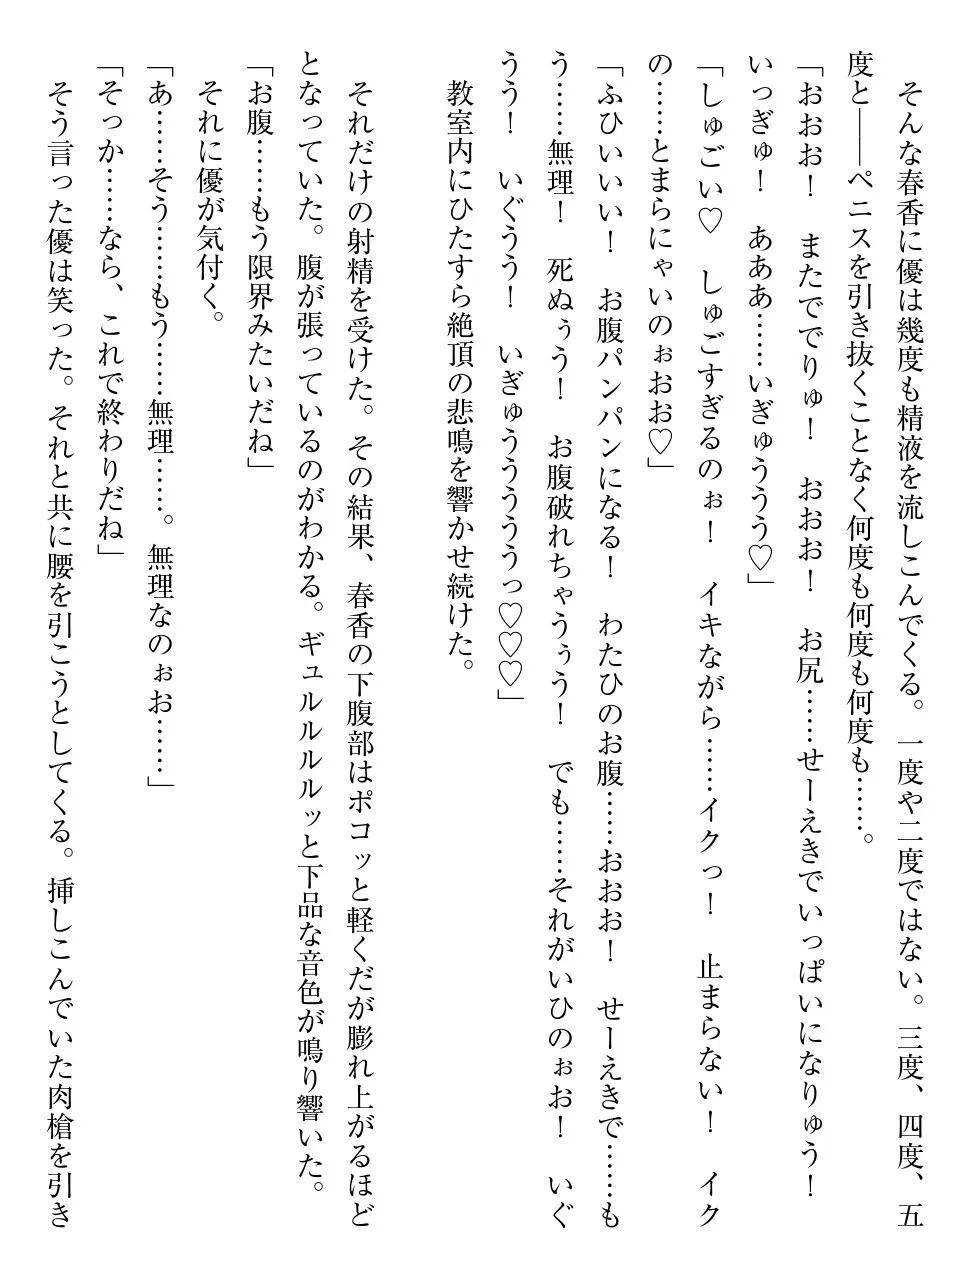 そんな春香に優は幾度も精液を流しこんでくる。一度や二度ではない。三度、四度、五
度と――ペニスを引き抜くことなく何度も何度も何度も……。
「おおお！　またででりゅ！　おおお！　お尻……せーえきでいっぱいになりゅう！
いっぎゅ！　あああ……いぎゅううう♡」
「しゅごい♡　しゅごすぎるのぉ！　イキながら……イクっ！　止まらない！　イク
の……とまらにゃいのぉおお♡」
「ふひいいい！　お腹パンパンになる！　わたひのお腹……おおお！　せーえきで……も
う……無理！　死ぬぅう！　お腹破れちゃうぅう！　でも……それがいひのぉお！　いぐ
うう！　いぐうう！　いぎゅうううううっ♡♡♡」
教室内にひたすら絶頂の悲鳴を響かせ続けた。
それだけの射精を受けた。その結果、春香の下腹部はポコッと軽くだが膨れ上がるほど
となっていた。腹が張っているのがわかる。ギュルルルルッと下品な音色が鳴り響いた。
「お腹……もう限界みたいだね」
それに優が気付く。
「あ……そう……もう……無理……。無理なのぉお……」
「そっか……なら、これで終わりだね」
そう言った優は笑った。それと共に腰を引こうとしてくる。挿しこんでいた肉槍を引き